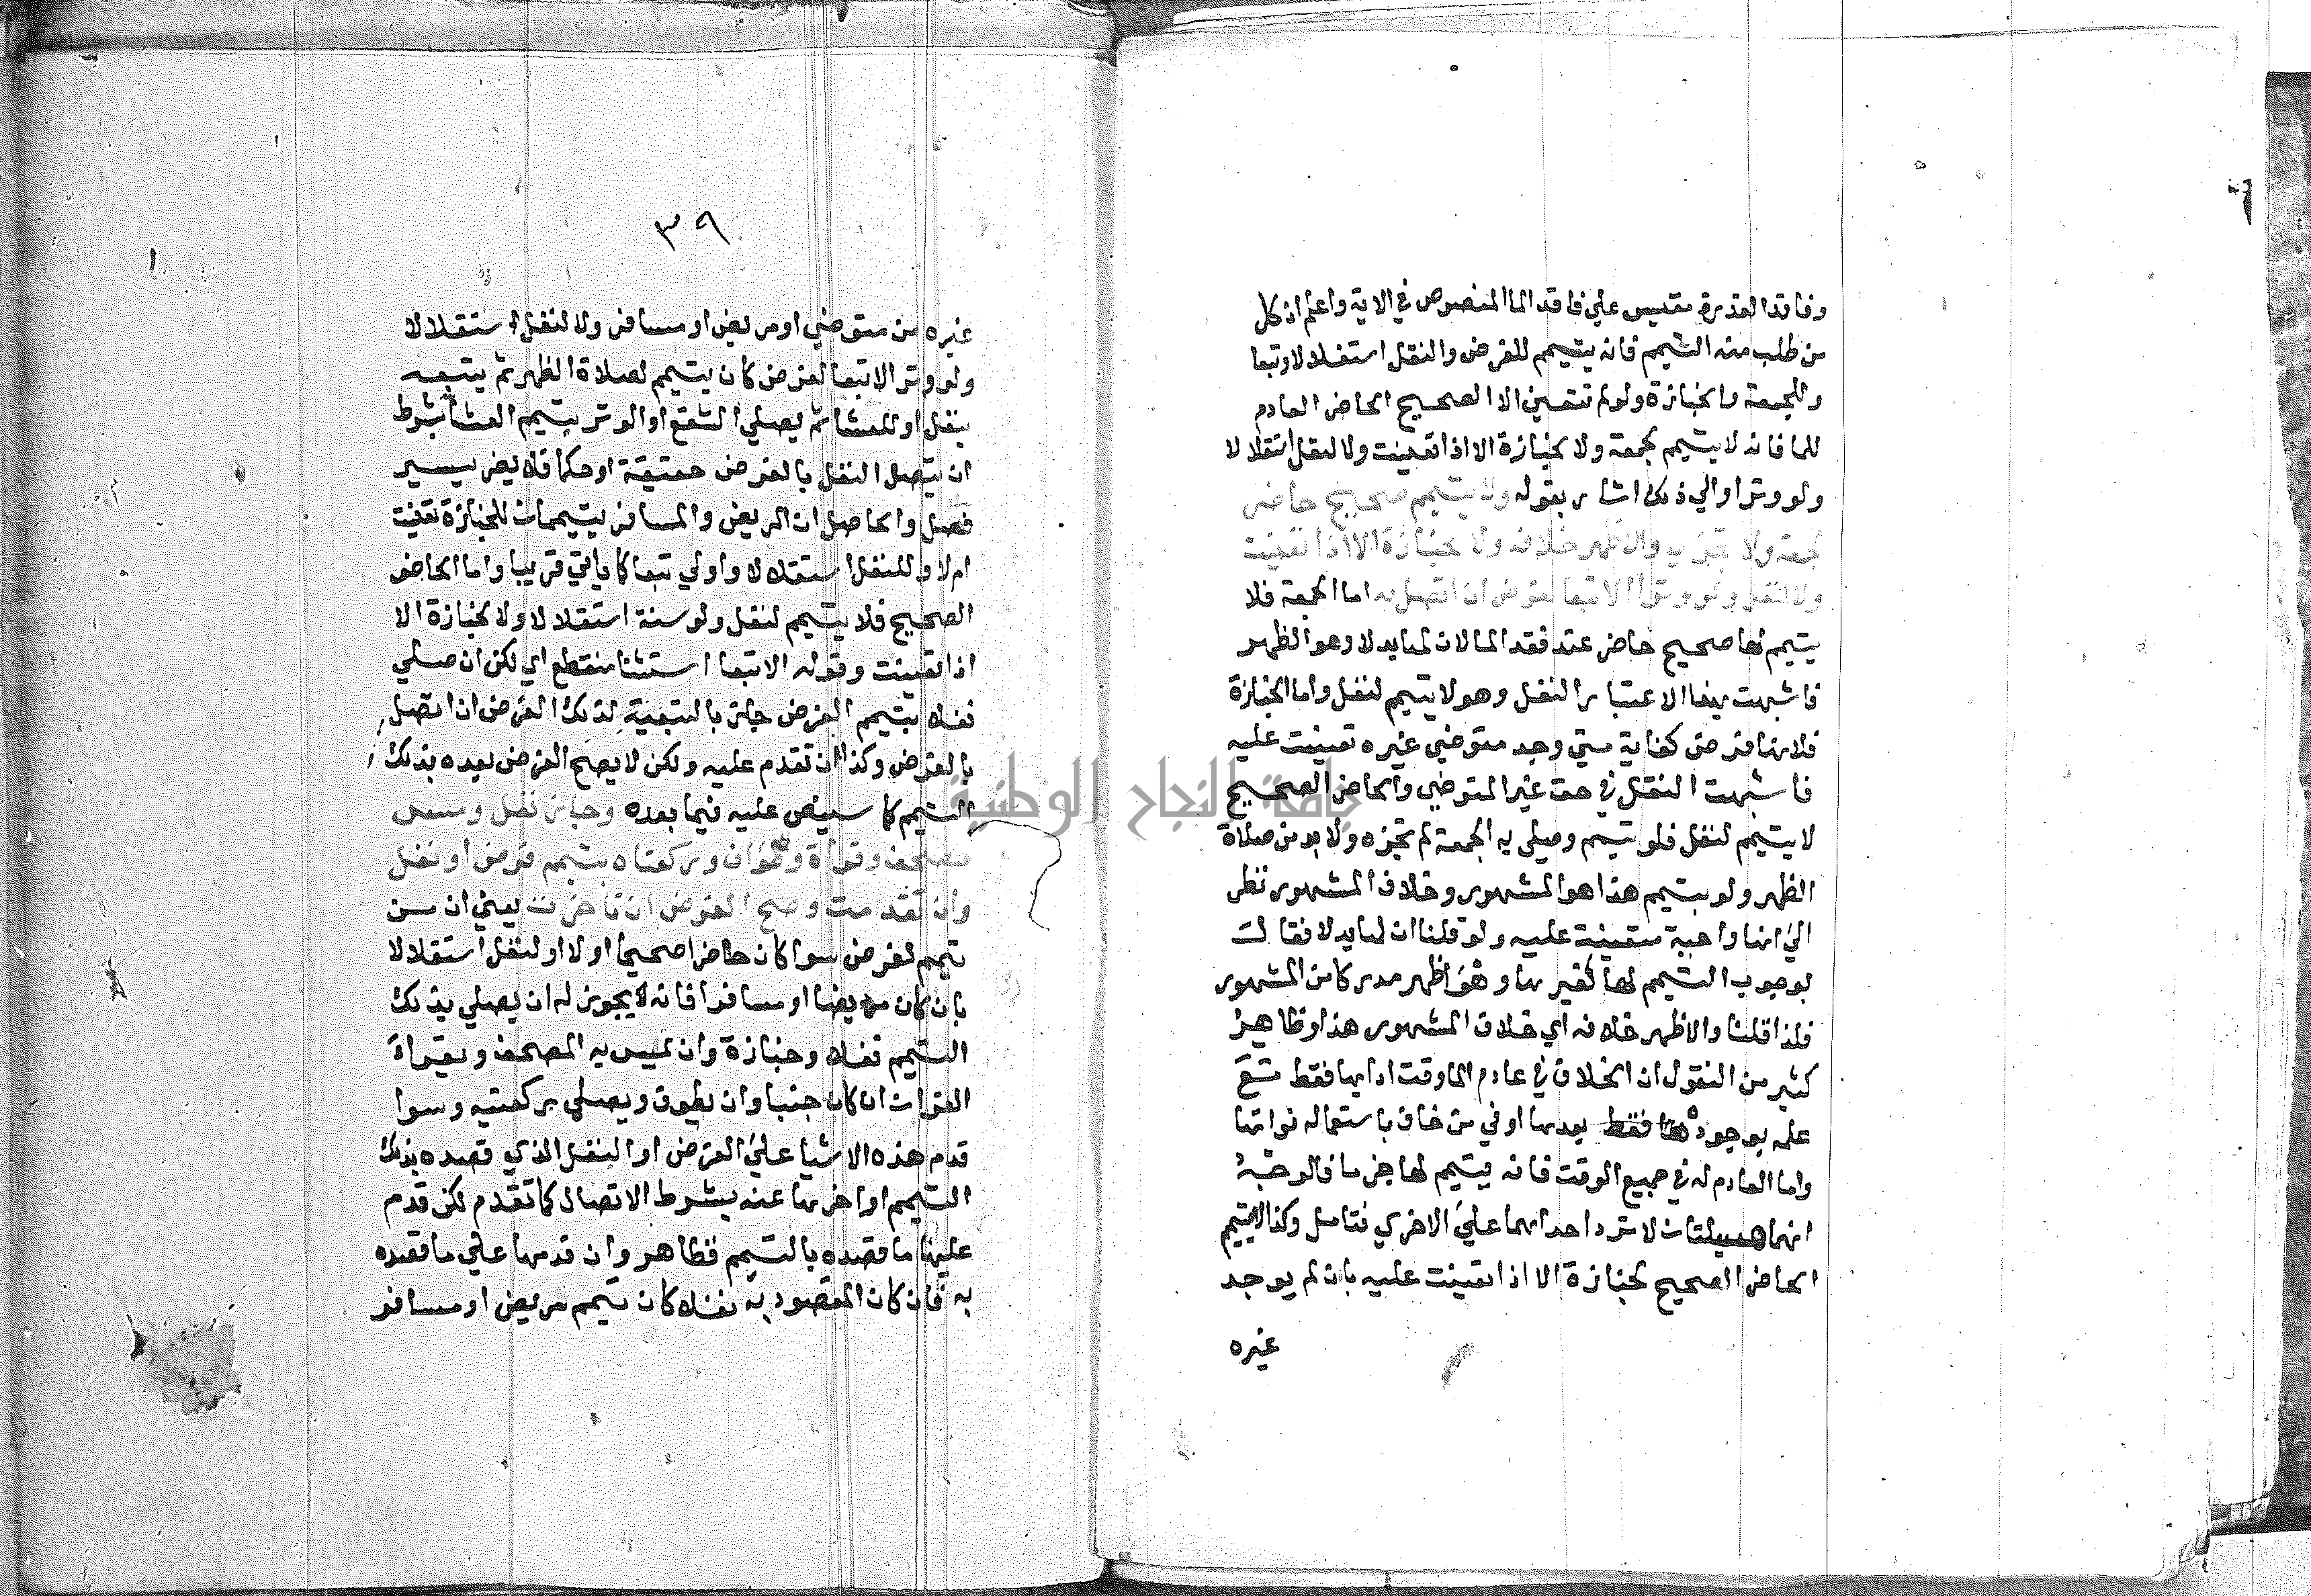 وفاقد القدرة مقيس علي فاقد الما المنصوص في الاية واعلم ان كل
من طلب منه التيمم فانه يتيمم للفرض والنفل استقلالا وتبعا
وللجمعة والجنازة ولو لم تتعين الا الصحيح الحاضر العادم
للما فانه لا يتيمم لجمعة ولا لجنازة الا اذا تعينت ولا لنفل استقلالا
ولو وترا والي ذلك اشار بقوله ولا يتيمم صحيح حاضر
لجمعة ولا تجزيه والاظهر خلافه ولا لجنازة الا اذا تعينت
ولا لنفل ولو وترا الا تبعا لفرض ان اتصل به اما الجمعة فلا
يتيمم لها صحيح حاضر عند فقد الما لان لها بدلا وهو الظهر
فاشبهت بهذا الاعتبار النفل وهو لا يتيمم لنفل واما الجنازة
فلانها فرض كفاية متي وجد متوضي غيره تعينت عليه
فاشبهت النفل في حق غير المتوضي والحاضر الصحيح
لا يتيمم لنفل فلو تيمم وصلي به الجمعة لم تجزه ولا بد من صلاة
الظهر ولو بتيمم هذا هو المشهور وخلاف المشهور نظر
الي انها واجبة متعينة عليه ولو قلنا ان لها بدلا فقالت
بوجوب التيمم لها كغيرها وهو اظهر مدركا من المشهور
فلذا قلنا والاظهر خلافه اي خلاف المشهور هذا وظاهر
كثير من النقول ان الخلاف في عادم الما وقت ادايها فقط مع
علمه بوجوده فقط بعدها او في من خاف باستعماله فواتها
واما العادم له في جميع الوقت فانه يتيمم لها جزما فالوجه
انهما لا ترد احداهما علي الاخري فتامل وكذا لا يتيمم
الحاضر الصحيح لجنازة الا اذا تعينت عليه بان لم يوجد
غيره
٣٩
غيره من متوضي او مريض او مسافر ولا لنفل استقلالا
ولو وترا الا تبعا لفرض كان يتيمم لصلاة الظهر ثم يتبعه
بنفل او للعشا ثم يصلي الشفع او الوتر بتيمم العشا بشرط
ان يتصل النفل بالفرض حقيقة او حكما فلا يضر يسير
فصل والحاصل ان المريض والمسافر يتيممان للجنازة تعينت
ام لا وللنفل استقلالا واولي تبعا كما ياتي قريبا واما الحاضر
الصحيح فلا يتيمم لنفل ولو سنة استقلالا ولا لجنازة الا
اذا تعينت وقوله الا تبعا استثنا منقطع اي لكن ان صلي
نفلا بتيمم الفرض جاز بالتبعية لذلك الفرض ان اتصل
بالفرض وكذا ان تقدم عليه ولكن لا يصح الفرض بعده بذلك
التيمم كما سينص عليه فيما بعده وجاز نفل ومس
مصحف وقراة وطواف وركعتاه بتيمم فرض او نفل
وان تقدمت وصح الفرض ان تاخرت يعني ان من
تيمم لفرض سوا كان حاضرا صحيحا او لا او لنفل استقلالا
بان كان مريضا او مسافرا فانه يجوز له ان يصلي بذلك
التيمم نفلا وجنازة وان يمس به المصحف ويقراة
القران ان كان جنبا وان يطوف ويصلي ركعتيه وسوا
قدم هذه الاشيا علي الفرض او النفل الذي قصده بذلك
التيمم او اخرها عنه بشرط الاتصال كما تقدم لكن قدم
عليها ما قصده بالتيمم فظاهر وان قدمها علي ما قصده
به فان كان المقصود به نفلا كان تيمم مريض او مسافر